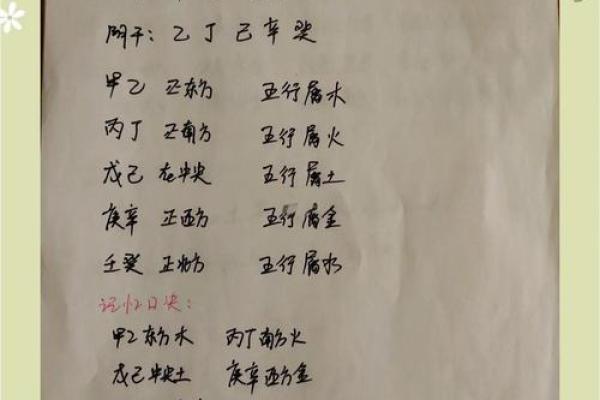 阴干：乙丁己辛癸
甲乙 正东方 五行属木
丙丁 正南方 五行属火
戊己 在中央 五行属土
庚辛 正西方 五行属金
壬癸 正北方 五行属水
记忆口诀：
甲乙东方木 丙丁南方火
戊己中央土 庚辛西方金